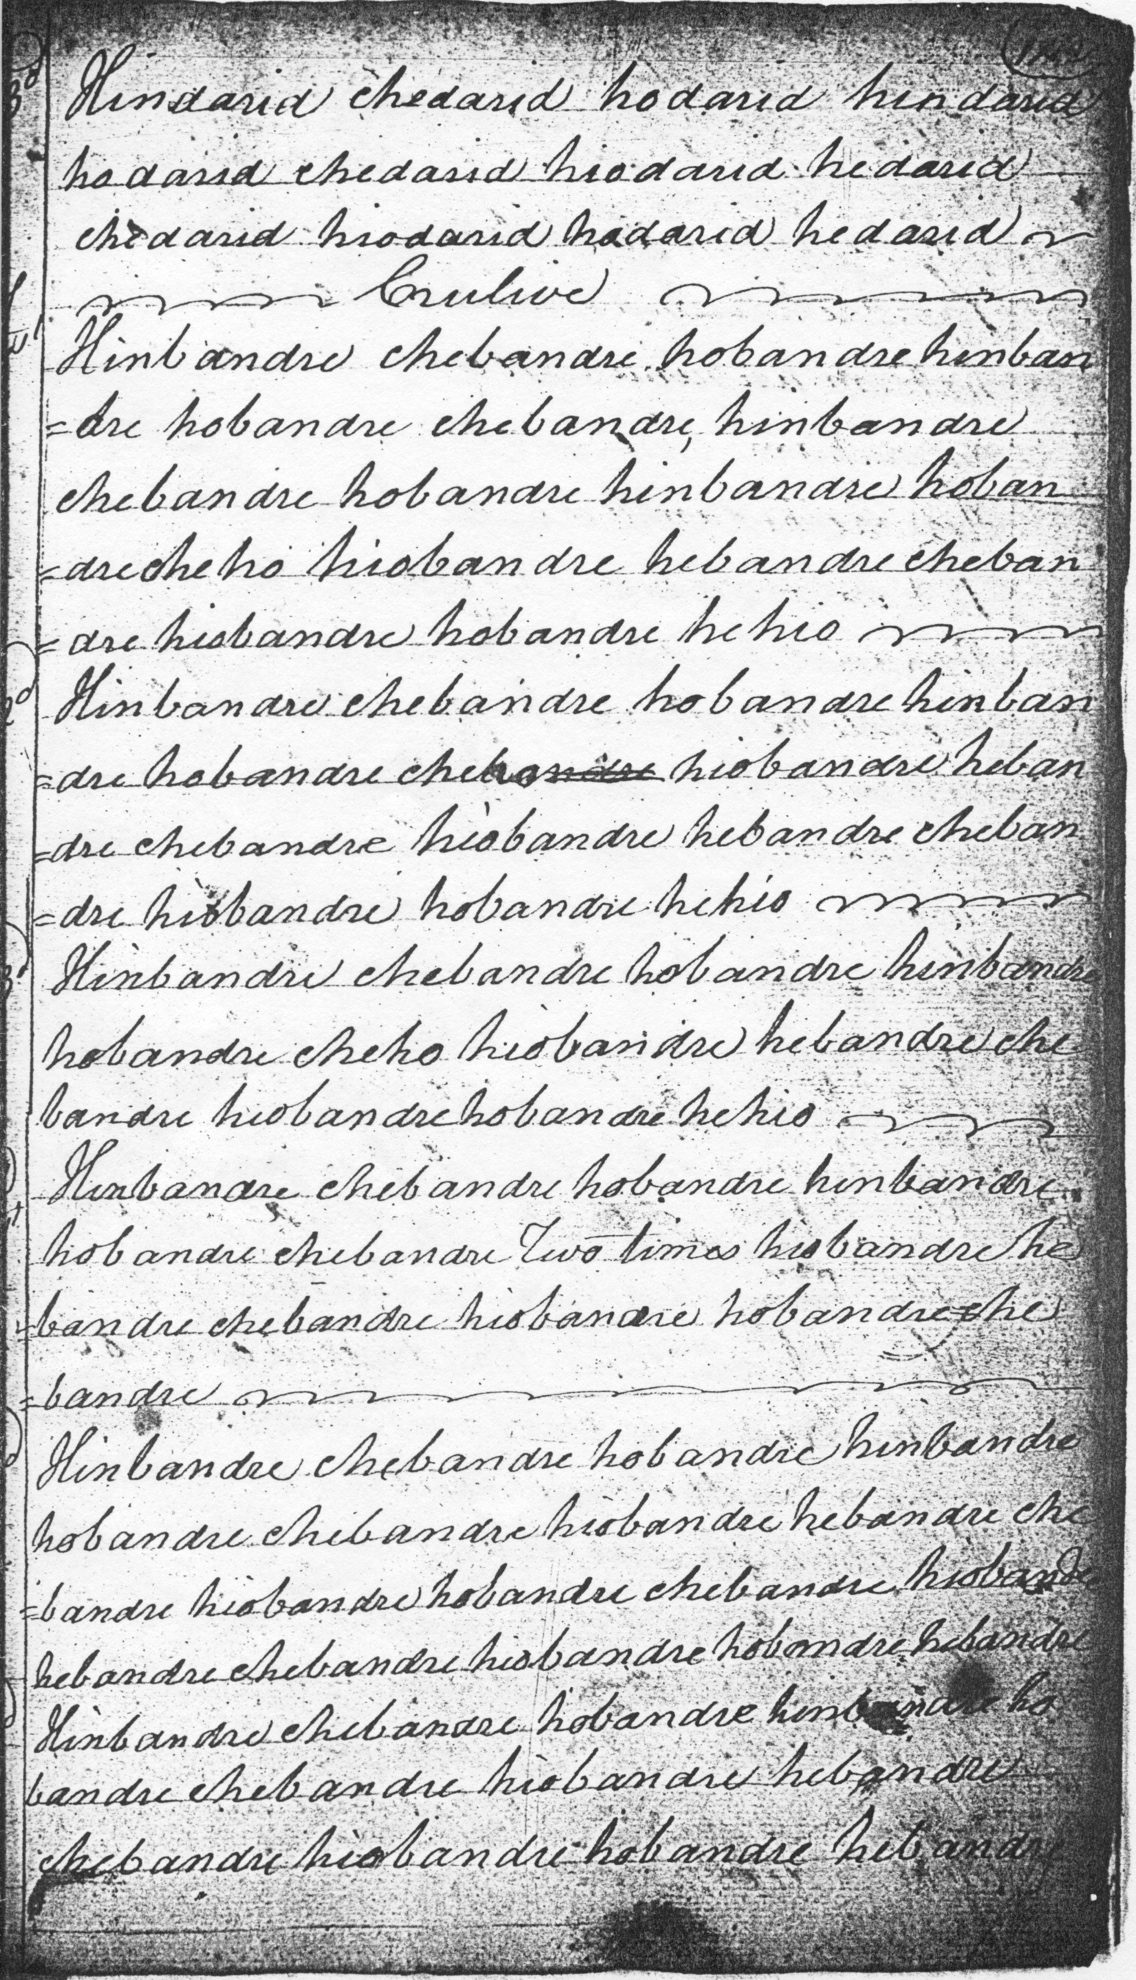 3d Hindarid chedarid hodarid hindarid
hodarid chedarid hiodarid hedarid
chedarid hiodarid hodarid hedarid
Crulive
Hinbandre chebandre hobandre hinban
=dre hobandre chebandre hinbandre
chebandre hobandre hinbandre hoban
=dre cheho hiobandre hebandre cheban
=dre hiobandre hobandre hehio
2d Hinbandre chebandre hobandre hinban
=dre hobandre cheho hiobandre heban
=dre chebandre hiobandre hebandre cheban
=dre hiobandre hobandre hehio
3d Hinbandre chebandre hobandre hinbandre
hobandre cheho hiobandre hebandre che
bandre hiobandre hobandre hehio
Hinbandre chebandre hobandre hinbandre
hobandre chebandre Two times hiobandre he
=bandre chebandre hiobandre hobandre che
=bandre
Hinbandre chebandre hobandre hinbandre
hobandre chebandre hiobandre hebandre che
=bandre hiobandre hobandre chebandre hiobandre
hebandre chebandre hiobandre hobandre hebandre
Hinbandre chebandre hobandre hinbandre ho
bandre chebandre hiobandre hebandre
chebandre hiobandre hobandre hebandre